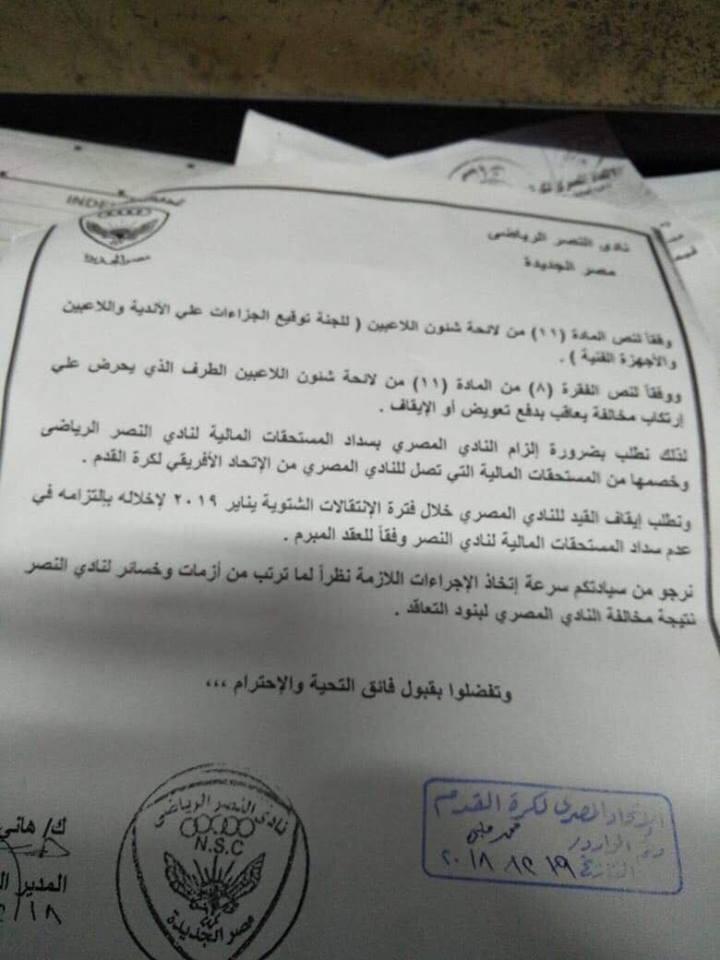 INDE
مصر الجديدة
نادى النصر الرياضى
مصر الجديدة
وفقاً لنص المادة (١١) من لائحة شئون اللاعبين ( للجنة توقيع الجزاءات علي الأندية واللاعبين
والأجهزة الفنية ) .
ووفقاً لنص الفقرة (٨) من المادة (١١) من لائحة شئون اللاعبين الطرف الذي يحرض علي
إرتكاب مخالفة يعاقب بدفع تعويض أو الإيقاف .
لذلك نطلب بضرورة إلزام النادي المصري بسداد المستحقات المالية لنادي النصر الرياضى
وخصمها من المستحقات المالية التي تصل للنادي المصري من الإتحاد الأفريقي لكرة القدم .
ونطلب إيقاف القيد للنادي المصري خلال فترة الإنتقالات الشتوية يناير ٢٠١٩ لإخلاله بإلتزامه في
عدم سداد المستحقات المالية لنادي النصر وفقاً للعقد المبرم .
نرجو من سيادتكم سرعة إتخاذ الإجراءات اللازمة نظراً لما ترتب من أزمات وخسائر لنادي النصر
نتيجة مخالفة النادي المصري لبنود التعاقد .
وتفضلوا بقبول فائق التحية والإحترام ,,,
الإتحاد المصرى لكرة القدم
رقم الوارد
التاريخ ١٩ ١٢ ٢٠١٨
نادى النصر الرياضى
N.S.C
مصر الجديدة
ك/ هاني
المدير ال